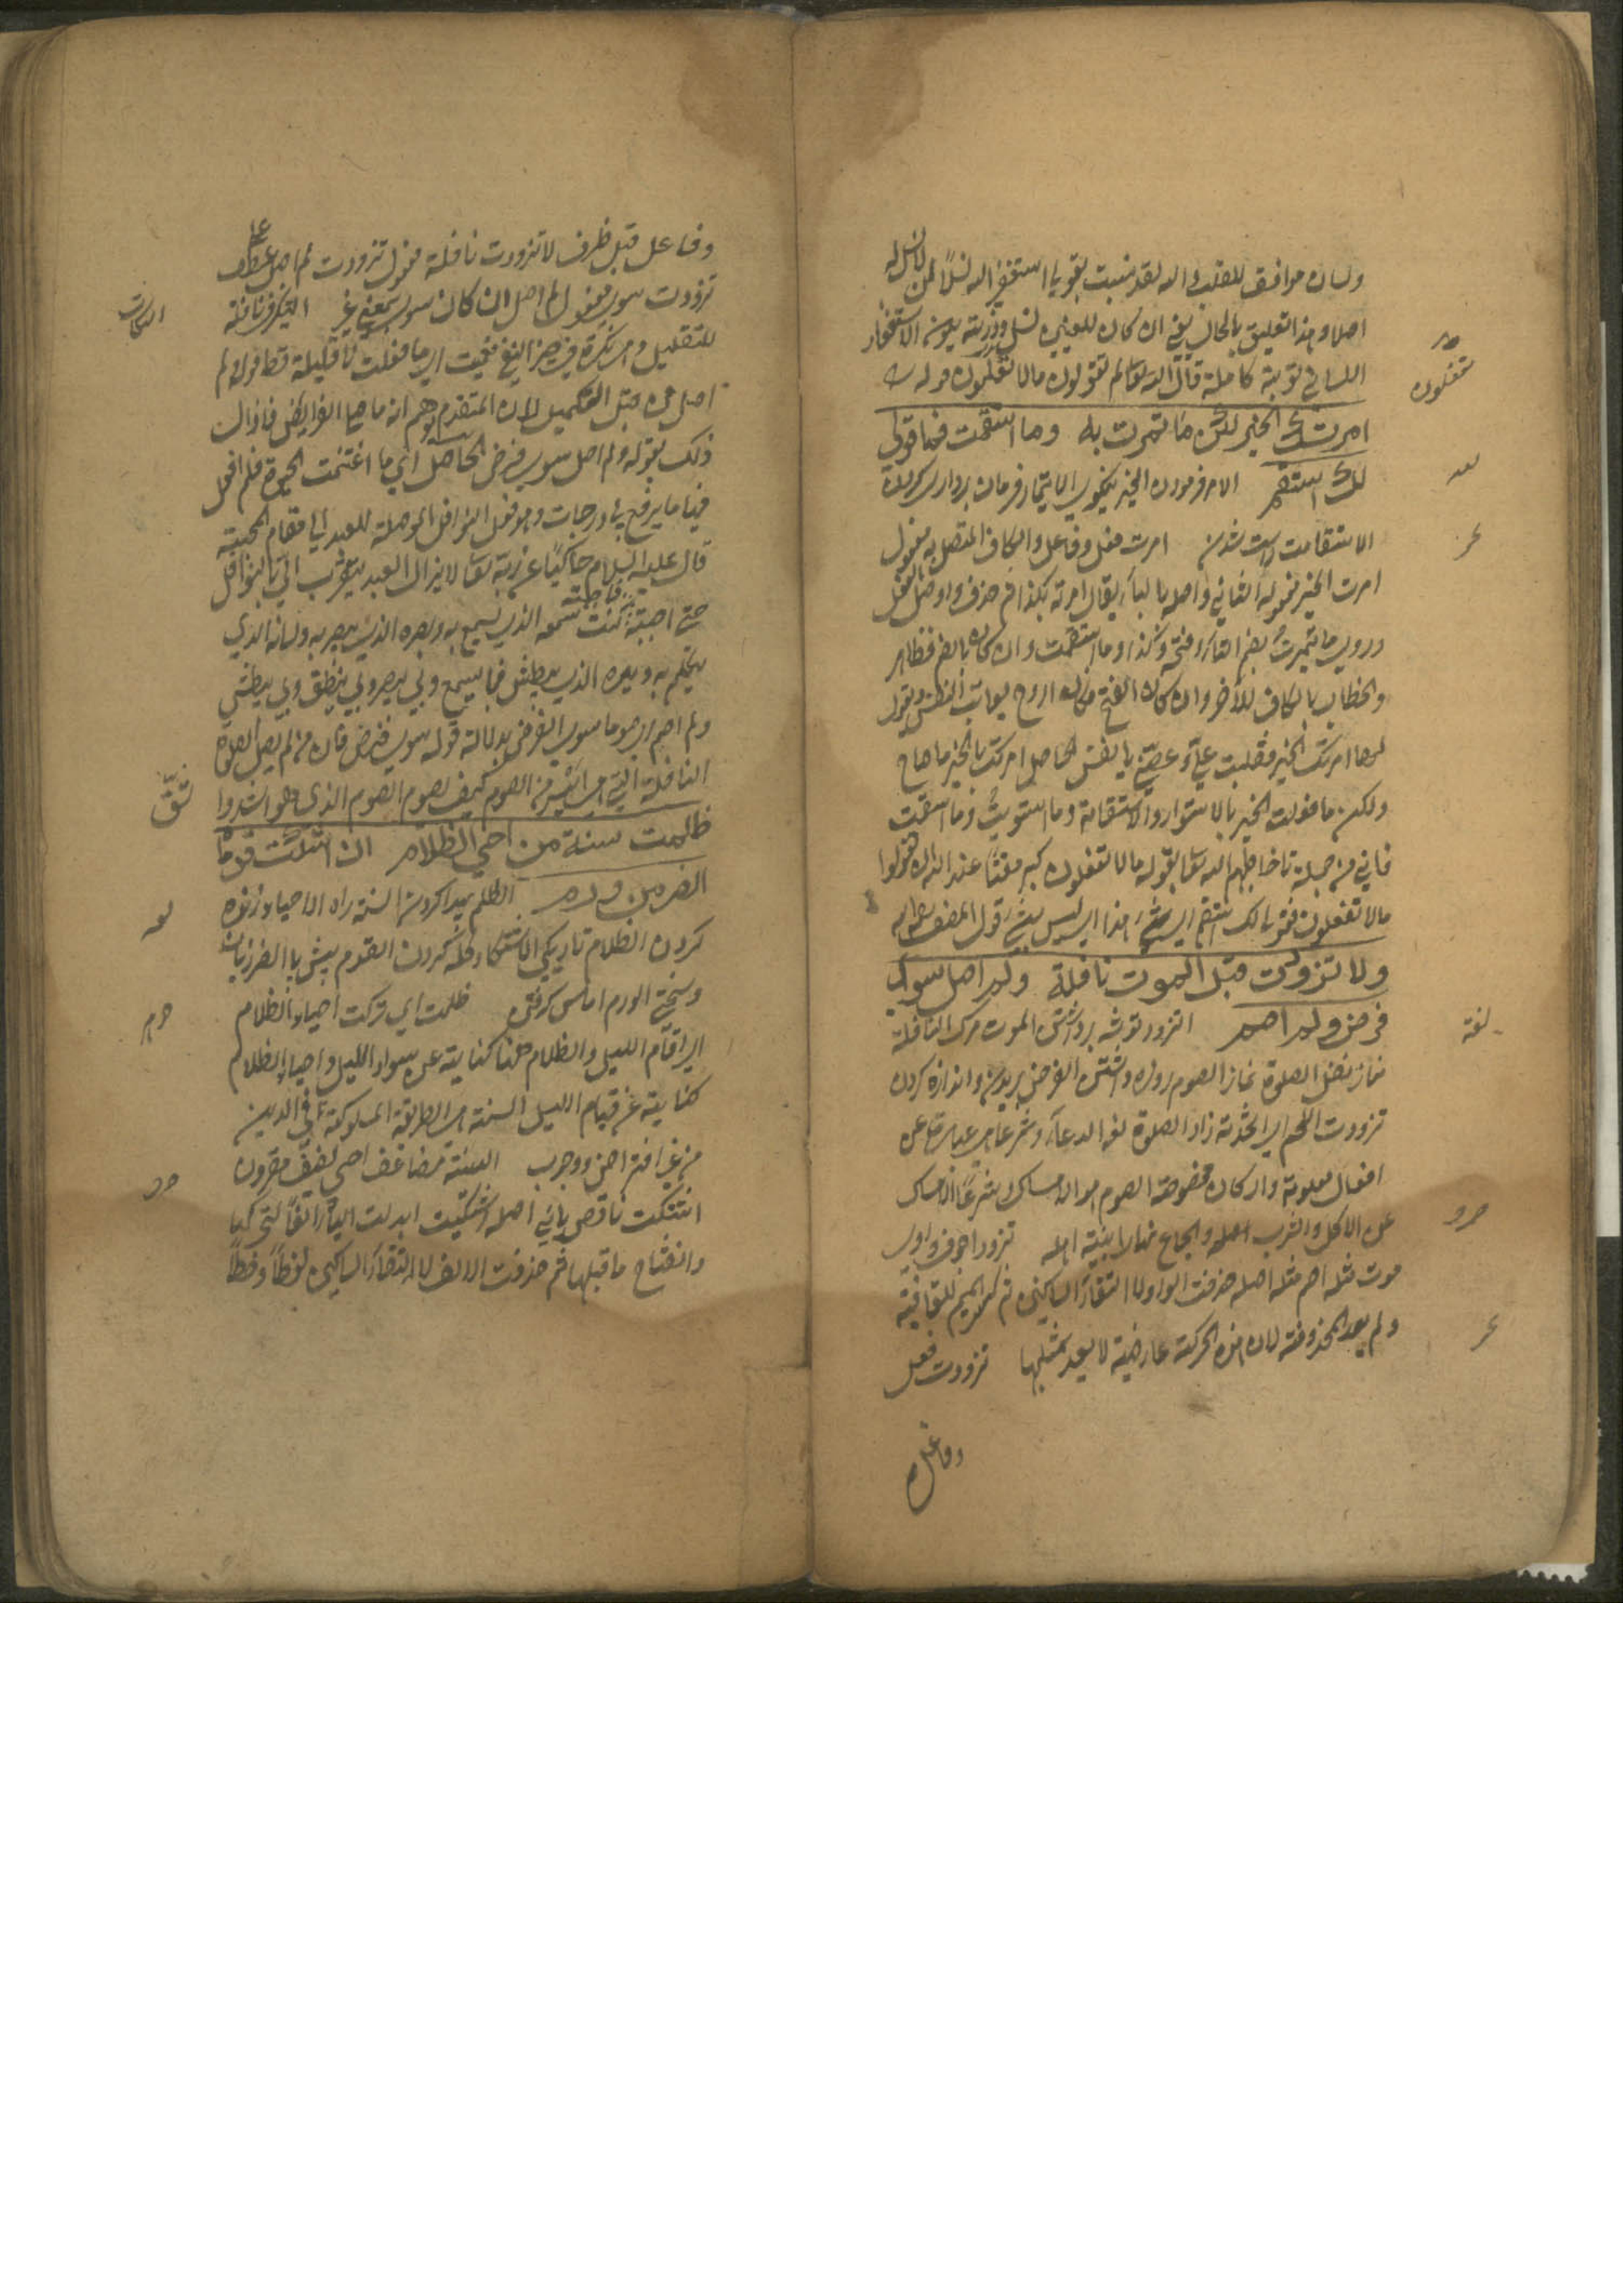 ولسان موافق للقلب والله لقد نسبت بقولي استغفر الله نسلا لمن لا نسل له
اصلا وهذا تعليق بالمحال يعني ان كان للعنين نسل وذرية يكون الاستغفار
اللساني توبة كاملة قال الله تعالى لم تقولون ما لا تفعلون قوله
تفعلون
امرتك الخير لكن ما ائتمرت به وما استقمت فما قولي
لك استقم الامر فرمودن الخير نيكويي الايتمار فرمان برداري كردن
الاستقامت راست شدن امرت فعل وفاعل والكاف المتصل به مفعول
امرت الخير مفعوله الثاني واصله بالباء يقال امرته بكذا ثم حذف واوصل الفعل
وروي ما ائتمرت بضم التاء وفتحه وكذا وما استقمت وان كان بالضم فظاهر
والخطاب بالكاف للآخر وان كان الفتح فكانه اروح يعاتب النفس ويقول
لها امرتك الخير فقلبت علي وعصيتني يا نفس الحاصل امرتك بالخير ما صاح
ولكن ما فعلت الخير بالاستواء والاستقامة وما استويت وما استقمت
فاني من جملة ما خاطبهم الله تعالى بقوله ما لا تفعلون كبر مقتا عند الله ان تقولوا
ما لا تفعلون فقولي لك استقم اي شيء هذا اي ليس بشيء قول المصنف رحمه الله
ولا تزودت قبل الموت نافلة ولم اصل سوى
فرض ولم اصم التزود توشه برداشتن الموت مرك النافلة
لغة
نماز نفل الصلوة نماز الصوم روزه داشتن الفرض بريدن واندازه كردن
تزودت اللحم اي اتخذته زادا الصلوة لغة الدعاء وشرعا هي عبارة عن
افعال معلومة واركان مخصوصة الصوم هو الامساك وشرعا الامساك
عن الاكل والشرب والجماع نهارا بنية اهله تزود اجوف واوي
موت مثله اصم مثله اصله حذفت الواو لالتقاء الساكنين ثم كسر الميم للقافية
ولم يعد المحذوفة لان هذه الحركة عارضية لا يعد بمثلها تزودت فعل
وفاعل
وفاعل قبل ظرف لا تزودت نافلة مفعول تزودت لم اصل عطف على
تزودت سوى مفعول لم اصل ان كان سوى بمعنى غير التنكير في نافلة
النكات
للتقليل وهي نكرة في حيز النفي فعمت اي ما فعلت لا قليلة قط قوله ولم
اصل من قبل التكميل لان المتقدم يوهم انه ما صام الفرايض فازال
ذلك بقوله ولم اصل سوى فرض الحاصل اني ما اغتنمت الحيوة فلم افعل
فيها ما يرفع لي درجات وهو فعل النوافل الموصلة للعبد الى مقام المحبة
قال عليه السلام حاكيا عن ربه تعالى لا يزال العبد يتقرب الي بالنوافل
حتى احبه فاذا احببته كنت سمعه الذي يسمع به وبصره الذي يبصر به ولسانه الذي
يتكلم به ويده الذي يبطش فبي يسمع وبي يبصر وبي ينطق وبي يبطش
ولم اصم اي صوما سوى الفرض بدلالة قوله سوى فرض فان من لم يصل الصلوة
النافلة التي هي ايسر من الصوم كيف يصوم الصوم الذي هو اشد
ظلمت سنة من احيى الظلام الى ان اشتكت قدماه
الضر من ورم الظلم بيداد كردن السنة راه الاحياء زنده
كردن الظلام تاريكي الاشتكاء گله كردن القدم پيش پا الضر زيان
وسختي الورم اماس گرفتن ظلمت اي تركت احياء الظلام
اي اقام الليل والظلام ههنا كناية عن سواد الليل واحياء الظلام
كناية عن قيام الليل السنة هي الطريقة المسلوكة في الدين
من غير افتراض ووجوب السنة مضاعف احيى لفيف مقرون
اشتكت ناقص يائي اصله اشتكيت ابدلت الياء الفا لتحركها
وانفتاح ما قبلها ثم حذفت الالف لالتقاء الساكنين لفظا وخطا